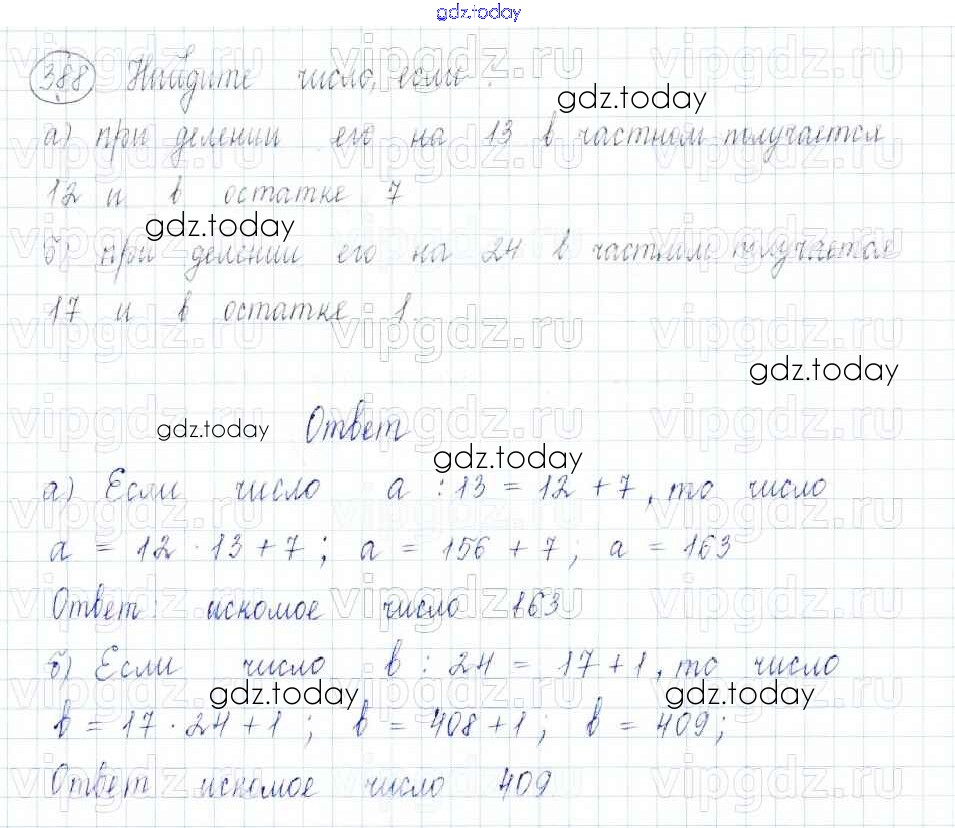 gdz.today
388 Найдите число, если:
gdz.today
а) при делении его на 13 в частном получается
12 и в остатке 7
gdz.today
б) при делении его на 24 в частном получается
17 и в остатке 1.
gdz.today
gdz.today Ответ
gdz.today
а) Если число а : 13 = 12 + 7, то число
а = 12 · 13 + 7 ; а = 156 + 7 ; а = 163
Ответ: искомое число 163
б) Если число в : 24 = 17 + 1, то число
gdz.today gdz.today
в = 17 · 24 + 1 ; в = 408 + 1 ; в = 409 ;
Ответ искомое число 409
vipgdz.ru